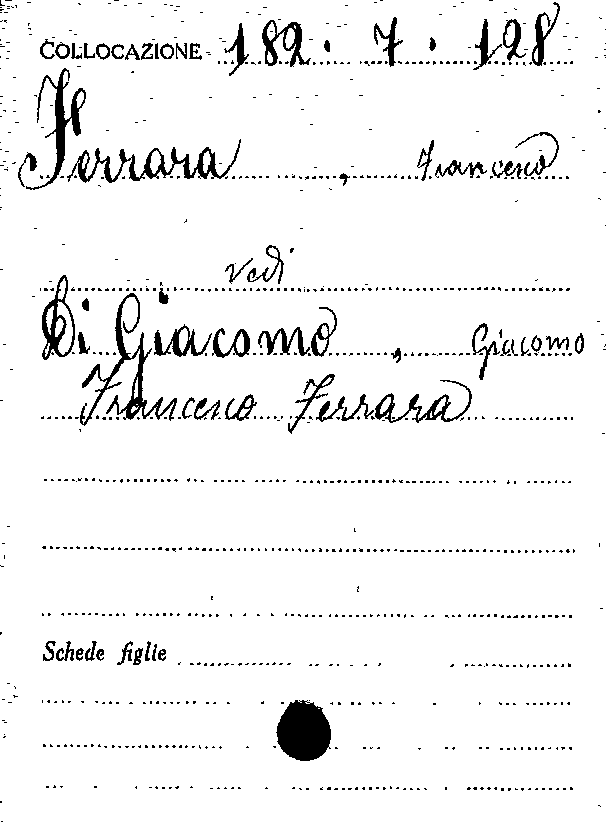 COLLOCAZIONE 182 . 7 . 128
Ferrara , Francesco
Vedi
Di Giacomo , Giacomo
Francesco Ferrara
Schede figlie